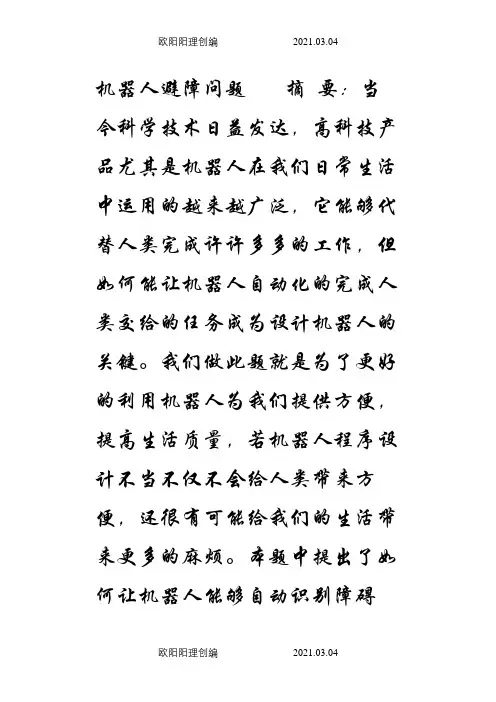 欧阳阳理创编 2021.03.04
机器人避障问题 摘 要：当
今科学技术日益发达，高科技产
品尤其是机器人在我们日常生活
中运用的越来越广泛，它能够代
替人类完成许许多多的工作，但
如何能让机器人自动化的完成人
类交给的任务成为设计机器人的
关键。我们做此题就是为了更好
的利用机器人为我们提供方便，
提高生活质量，若机器人程序设
计不当不仅不会给人类带来方
便，还很有可能给我们的生活带
来更多的麻烦。本题中提出了如
何让机器人能够自动识别障碍
欧阳阳理创编 2021.03.04